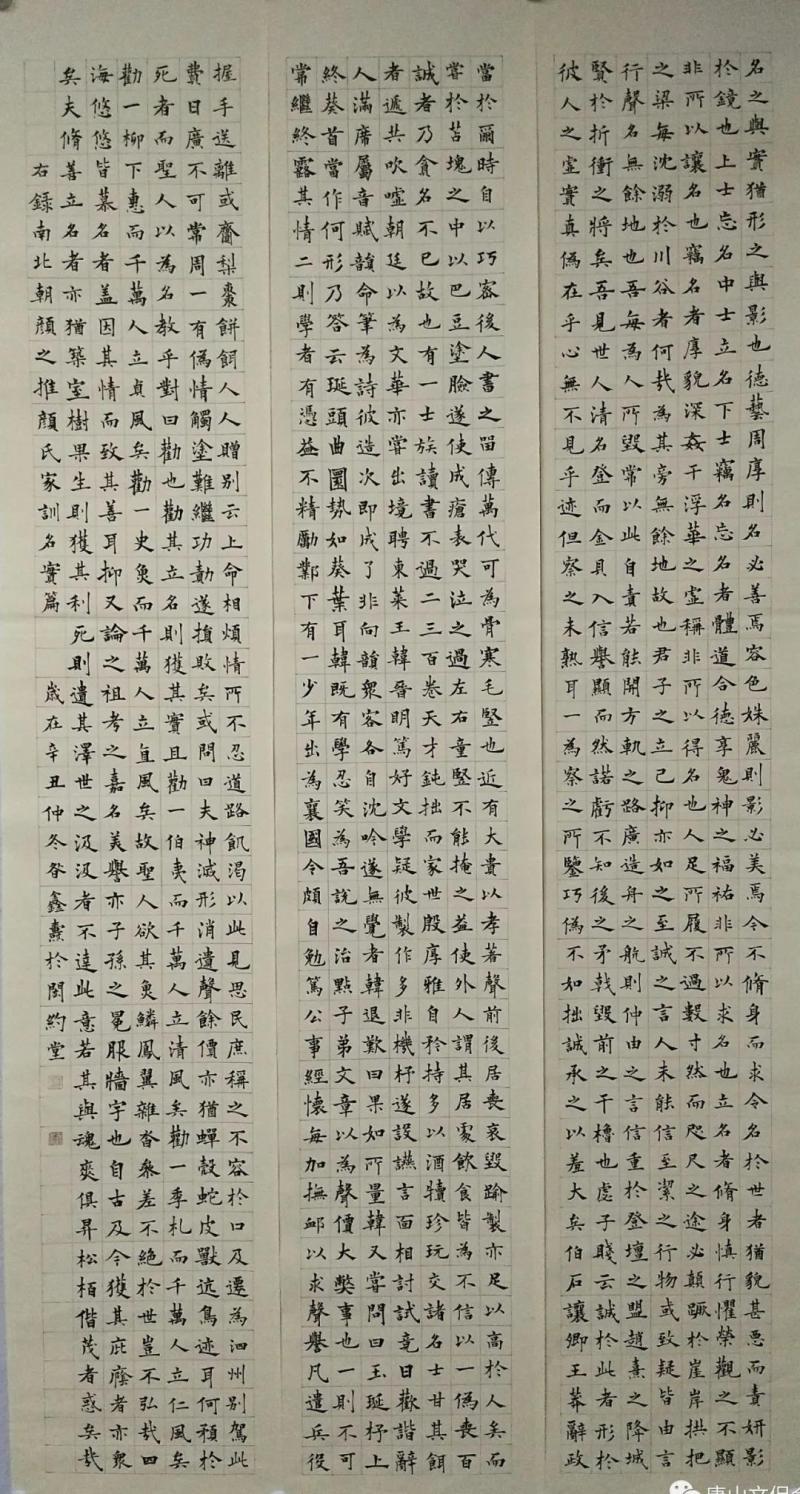 名之與實猶形之與影也德藝周厚則名必善焉容色姝麗則影必美焉今不脩身而求令名於世者猶貌甚惡而責妍影
於鏡也上士忘名中士立名下士竊名忘名者體道合德享鬼神之福祐非所以求名也立名者脩身慎行懼榮觀之不顯
非所以讓名也竊名者厚貌深姦干浮華之虛稱非所以得名也人足所履不過數寸然而咫尺之途必顛蹶於崖岸拱把
之梁每沈溺於川谷者何哉為其旁無餘地故也君子之立己抑亦如之至誠之言人未能信至潔之行物或致疑皆由言
行聲名無餘地也吾每為人所毀常以此自責若能開方軌之路廣造舟之航則仲由之言信重於登壇之盟趙熹之降城
賢於折衝之將矣吾見世人清名登而金貝入信譽顯而然諾虧不知後之矛戟毀前之干櫓也虙子賤云誠於此者形於
彼人之虛實真偽在乎心無不見乎迹但察之未熟耳一為察之所鑒巧偽不如拙誠承之以羞大矣伯石讓卿王莽辭政
當於爾時自以巧密後人書之留傳萬代可為骨寒毛豎也近有大貴以孝著聲前後居喪哀毀踰製亦足以高於人矣而
嘗於苫塊之中以巴豆塗臉遂使成瘡表哭泣之過左右童豎不能掩之益使外人謂其居處飲食皆為不信以一偽喪百
誠者乃貪名不已故也有一士族讀書不過二三百卷天才鈍拙而家世殷厚雅自矜持多以酒犢珍玩交諸名士甘其餌
者遞共吹噓朝廷以為文華亦嘗出境聘東萊王韓晉明篤好文學疑彼製作多非機杼遂設讌言面相討試竟日歡諧辭
人滿席屬音賦韻命筆為詩彼造次即成了非向韻衆客各自沈吟遂無覺者韓退歎曰果如所量韓又嘗問曰玉珽杼上
終葵首當作何形乃答云珽頭曲圜勢如葵葉耳韓既有學忍笑為吾說之治點子弟文章以為聲價大弊事也一則不可
常繼終露其情二則學者有憑益不精勵鄴下有一少年出為襄國令頗自勉篤公事經懷每加撫卹以求聲譽凡遣兵役
握手送離或齎梨棗餅餌人人贈別云上命相煩情所不忍道路飢渴以此見思民庶稱之不容於口及遷為泗州別駕此
費日廣不可常周一有偽情觸塗難繼功勣遂損敗矣或問曰夫神滅形消遺聲餘價亦猶蟬殼蛇皮獸迒鳥迹耳何預於
死者而聖人以為名教乎對曰勸也勸其立名則獲其實且勸一伯夷而千萬人立清風矣勸一季札而千萬人立仁風矣
勸一柳下惠而千萬人立貞風矣勸一史魚而千萬人立直風矣故聖人欲其魚鱗鳳翼雜沓參差不絕於世豈不弘哉四
海悠悠皆慕名者蓋因其情而致其善耳抑又論之祖考之嘉名美譽亦子孫之冕服牆宇也自古及今獲其庇廕者亦衆
矣夫脩善立名者亦猶築室樹果生則獲其利死則遺其澤世之汲汲者不達此意若其與魂爽俱昇松栢偕茂者惑矣哉
右錄南北朝顏之推顏氏家訓名實篇 歲在辛丑仲冬昝鑫燾於閎約堂